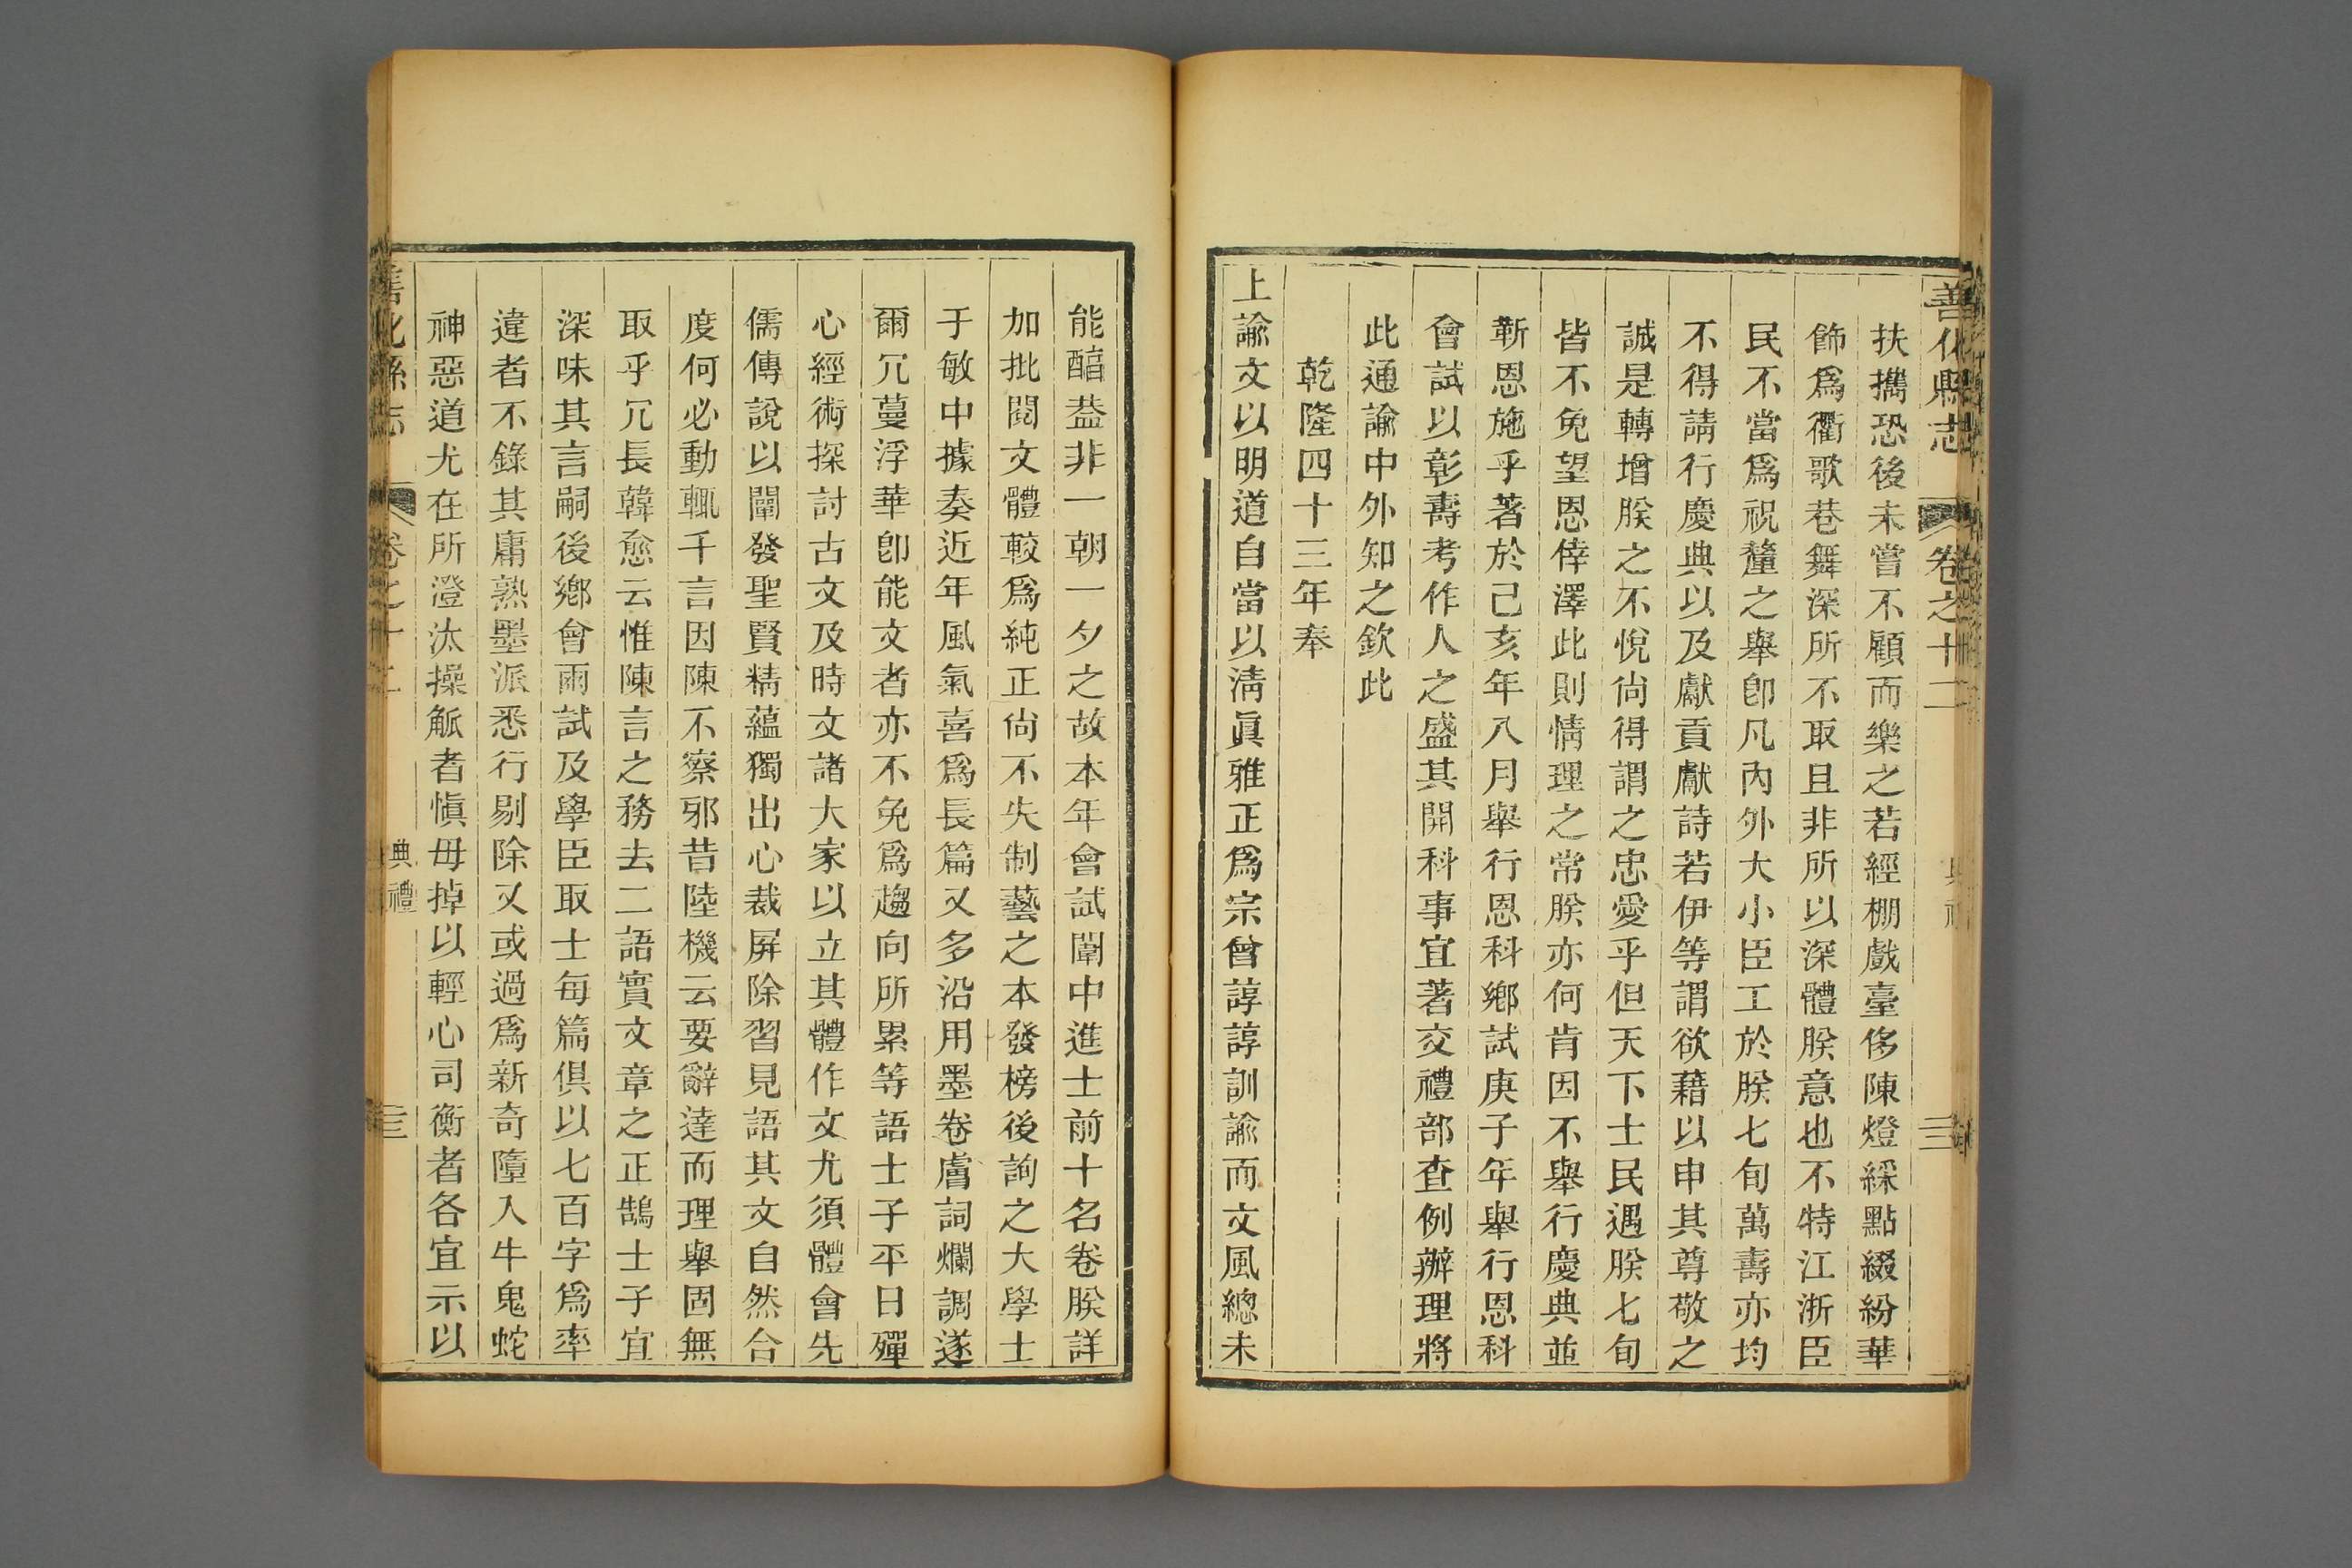 善化縣志 卷之十二
扶攜恐後未嘗不顧而樂之若經棚戲臺侈陳燈綵點綴紛華
飾爲衢歌巷舞深所不取且非所以深體朕意也不特江浙臣
民不當爲祝釐之舉卽凡內外大小臣工於朕七旬萬壽亦均
不得請行慶典以及獻貢獻詩若伊等謂欲藉以申其尊敬之
誠是轉增朕之不悅尙得謂之忠愛乎但天下士民遇朕七旬
皆不免望恩倖澤此則情理之常朕亦何肯因不舉行慶典並
靳恩施乎著於己亥年八月舉行恩科鄉試庚子年舉行恩科
會試以彰壽考作人之盛其開科事宜著交禮部查例辦理將
此通諭中外知之欽此
乾隆四十三年奉
上諭文以明道自當以淸眞雅正爲宗曾諄諄訓諭而文風總未
能醕葢非一朝一夕之故本年會試闈中進士前十名卷朕詳
加批閱文體較爲純正尙不失制藝之本發榜後詢之大學士
于敏中據奏近年風氣喜爲長篇又多沿用墨卷膚詞爛調遂
爾冗蔓浮華卽能文者亦不免爲趨向所累等語士子平日殫
心經術探討古文及時文諸大家以立其體作文尤須體會先
儒傳說以闡發聖賢精蘊獨出心裁屏除習見語其文自然合
度何必動輒千言因陳不察邪昔陸機云要辭達而理舉固無
取乎冗長韓愈云惟陳言之務去二語實文章之正鵠士子宜
深味其言嗣後鄉會兩試及學臣取士每篇俱以七百字爲率
違者不錄其庸熟墨派悉行剔除又或過爲新奇墮入牛鬼蛇
神惡道尤在所澄汰操觚者愼毋掉以輕心司衡者各宜示以
善化縣志 卷之十二 典禮 三